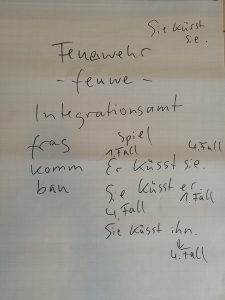 Sie küsst
sie.
Feuerwehr
- feuwe -
Integrationsamt
frag
komm
bau
Spiel
1. Fall 4. Fall
Er küsst sie.
Sie küsst er
4. Fall 1. Fall
Sie küsst ihn.
4. Fall